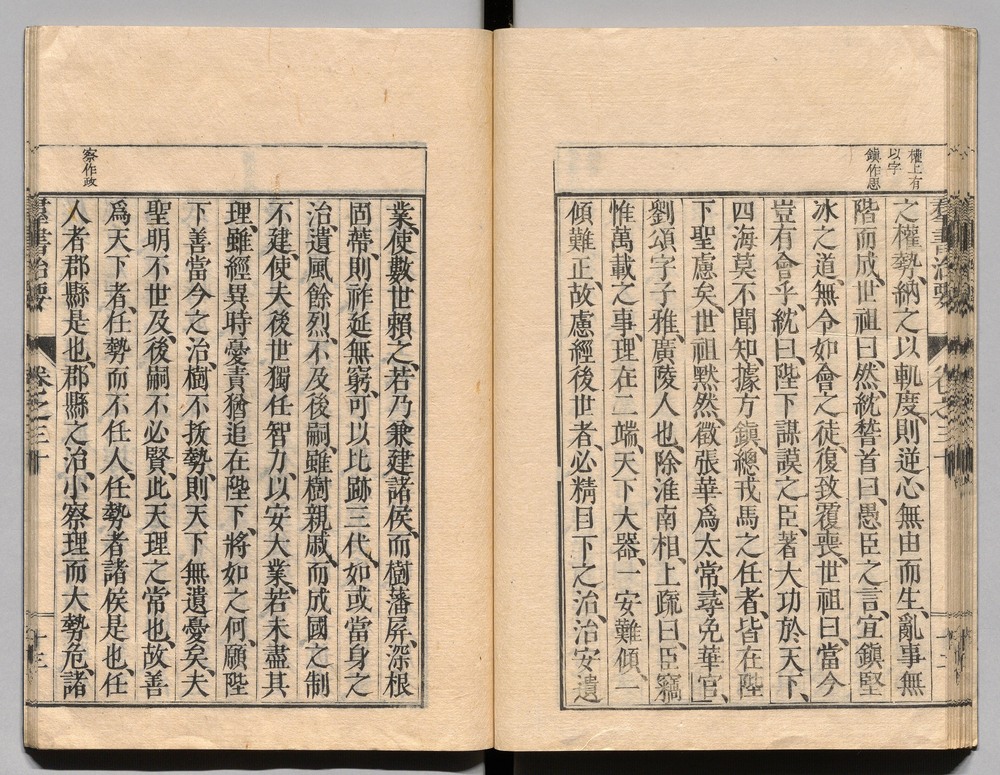 權上有
以字
鎮作思
之權勢納之以軌度、則逆心無由而生、亂事無
階而成、世祖曰、然、紞𥡴首曰、愚臣之言、宜鎮堅
冰之道、無令如會之徒、復致覆喪、世祖曰、當今
豈有會乎、紞曰、陛下謀謨之臣、著大功於天下、
四海莫不聞知、據方鎮、總戎馬之任者、皆在陛
下聖慮矣、世祖默然、徵張華爲太常、尋免華官、
劉頌字子雅、廣陵人也、除淮南相、上疏曰、臣竊
惟萬載之事、理在二端、天下大器、一安難傾、一
傾難正、故慮經後世者、必精目下之治、治安遺
羣書治要 卷之三十 十二
察作政
業、使數世賴之、若乃兼建諸侯、而樹藩屏、深根
固蔕、則祚延無窮、可以比跡三代、如或當身之
治、遺風餘烈、不及後嗣、雖樹親戚、而成國之制
不建、使夫後世獨任智力、以安大業、若未盡其
理、雖經異時、憂責猶追在陛下、將如之何、願陛
下善當今之治、樹不拔勢、則天下無遺憂矣、夫
聖明不世及、後嗣不必賢、此天理之常也、故善
爲天下者、任勢而不任人、任勢者、諸侯是也、任
人者、郡縣是也、郡縣之治、小察理而大勢危、諸
羣書治要 卷之三十 十三